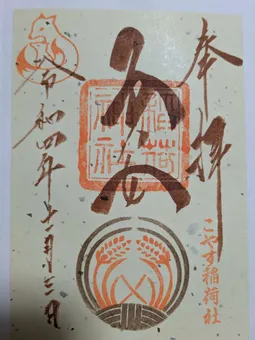 奉拝
こやす稲荷社
子安
稲荷
神社
令和四年十一月三日